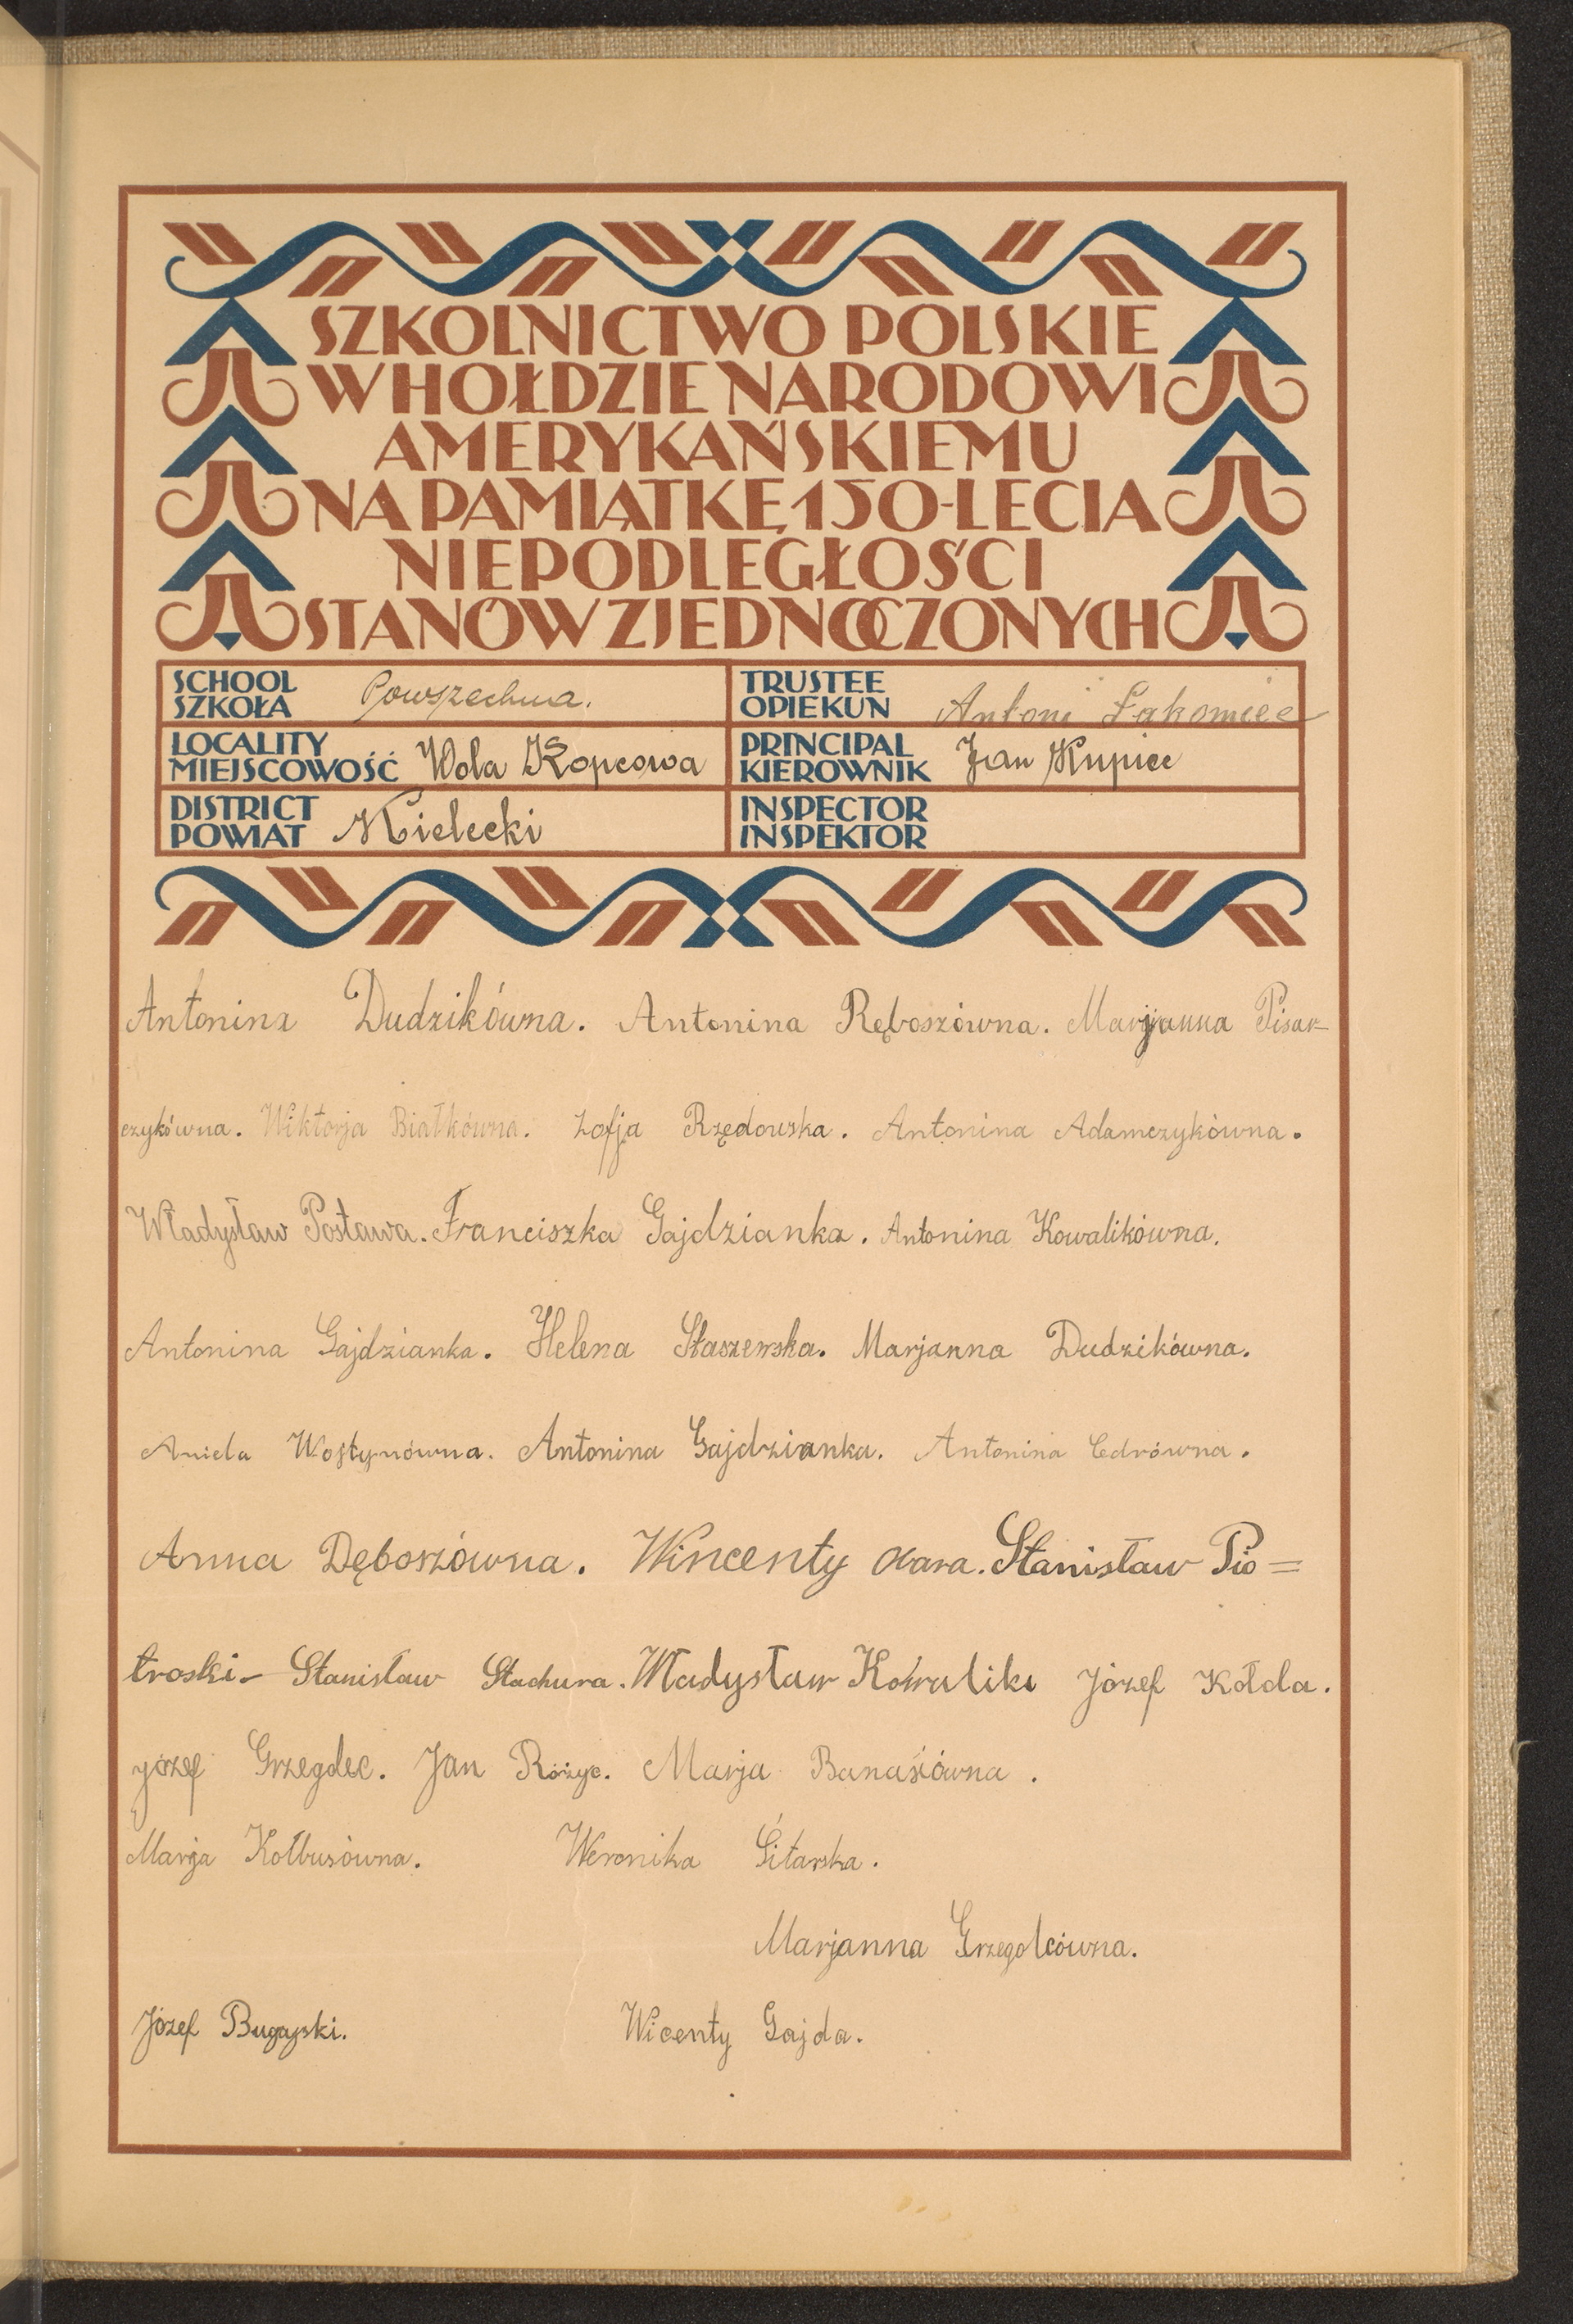 SZKOLNICTWO POLSKIE
W HOŁDZIE NARODOWI
AMERYKAŃSKIEMU
NA PAMIĄTKĘ 150-LECIA
NIEPODLEGŁOŚCI
STANÓW ZJEDNOCZONYCH
SCHOOL
SZKOŁA Powszechna.
TRUSTEE
OPIEKUN Antoni Łakomiec
LOCALITY
MIEJSCOWOŚĆ Wola Kopcowa
PRINCIPAL
KIEROWNIK Jan Kupiec
DISTRICT
POWIAT Kielecki
INSPECTOR
INSPEKTOR
Antonina Dudzikówna. Antonina Ręboszówna. Marjanna Pisar-
czykówna. Wiktorja Białkówna. Zofja Rzędowska. Antonina Adamczykówna.
Władysław Postawa. Franciszka Gajdzianka. Antonina Kowalikówna.
Antonina Gajdzianka. Helena Staszewska. Marjanna Dudzikówna.
Aniela Wojtynówna. Antonina Gajdzianka. Antonina Cedrówna.
Anna Dęboszówna. Wincenty Stanisław Pio=
troski- Stanisław Stachura. Władysław Kowalik Józef Kołda.
Józef Grzegdec. Jan Różyc. Marja Banasiówna.
Marja Kołbusówna. Weronika Śitarska.
Marjanna Grzegolcówna.
Józef Bugajski. Wicenty Gajda.